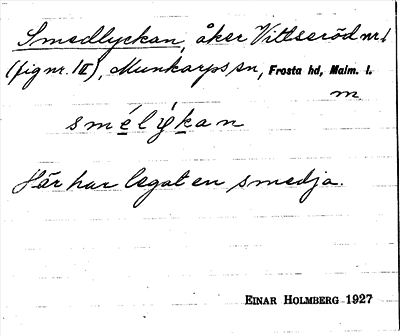 Smedlyckan, åker Vittseröd nr 1
(fig nr. III), Munkarps sn, Frosta hd, Malm. l.
m
smélýkan
Här har legat en smedja.
EINAR HOLMBERG 1927